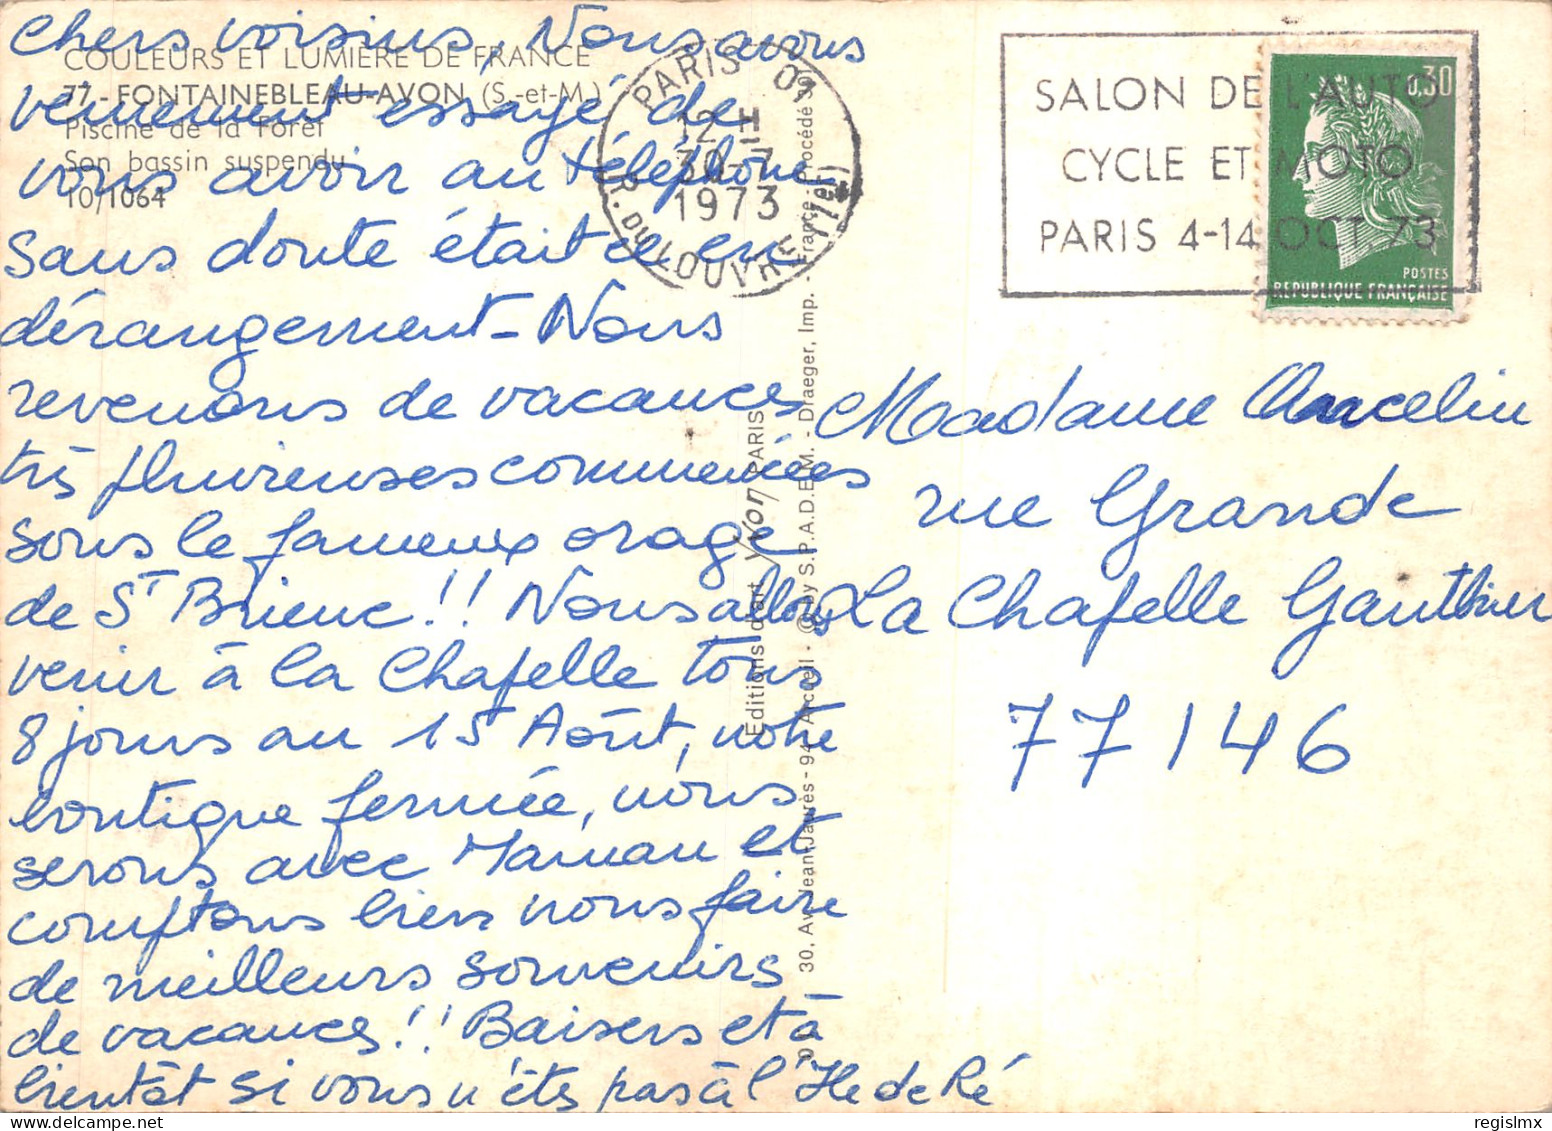 COULEURS ET LUMIÈRE DE FRANCE
77 - FONTAINEBLEAU-AVON (S.-et-M.)
Piscine de la Forêt
Son bassin suspendu
10/1064
chers voisins, Nous avons
vainement essayé de
vous avoir au téléphone
sans doute était ce en
dérangement - Nous
revenons de vacances
très pluvieuses commencées
sous le fameux orage
de St Brieuc !! Nous allons
venir à la Chapelle tous
8 jours au 15 Août, notre
boutique fermée, nous
serons avec Maman et
comptons bien nous faire
de meilleurs souvenirs
de vacances !! Baisers et à
bientôt si vous n'êtes pas à l'Ile de Ré
PARIS 01
12 H
30-7
1973
R. DU LOUVRE (1er)
SALON DE L'AUTO
CYCLE ET MOTO
PARIS 4-14 OCT. 73
0,30
POSTES
RÉPUBLIQUE FRANÇAISE
Editions d'art Yvon PARIS
30, Av. Jean-Jaurès - 94 Arcueil - © by S.P.A.D.E.M. - Draeger, Imp. - France - Procédé
Madame Ancelin
rue Grande
La Chapelle Gauthier
77146
regislmx